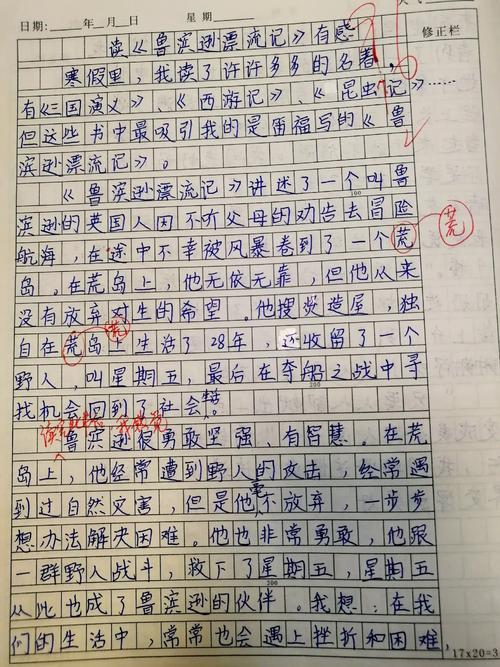 日期：____年__月__日 星期____
修正栏
读《鲁滨逊漂流记》有感
寒假里，我读了许许多多的名著，
有《三国演义》、《西游记》、《昆虫记》……
但这些书中最吸引我的是笛福写的《鲁
滨逊漂流记》。
《鲁滨逊漂流记》讲述了一个叫鲁
100
滨逊的英国人因不听父母的劝告去冒险
航海，在途中不幸被风暴卷到了一个荒
荒
岛。在荒岛上，他无依无靠，但他从来
没有放弃对生的希望。他搜炎造屋，独
荒
自在荒岛上生活了28年，还收留了一个
野人，叫星期五，最后在夺船之战中寻
200
找机会回到了社会。
鲁滨逊很勇敢坚强、有智慧。在荒
岛上，他经常遭到野人的攻击，经常遇
到过自然灾害，但是他毫不放弃，一步步
想办法解决困难。他也非常勇敢，他跟
一群野人战斗，救下了星期五，星期五
300
从此也成了鲁滨逊的伙伴。我想：在我
们的生活中，常常也会遇上挫折和困难，
17×20=3